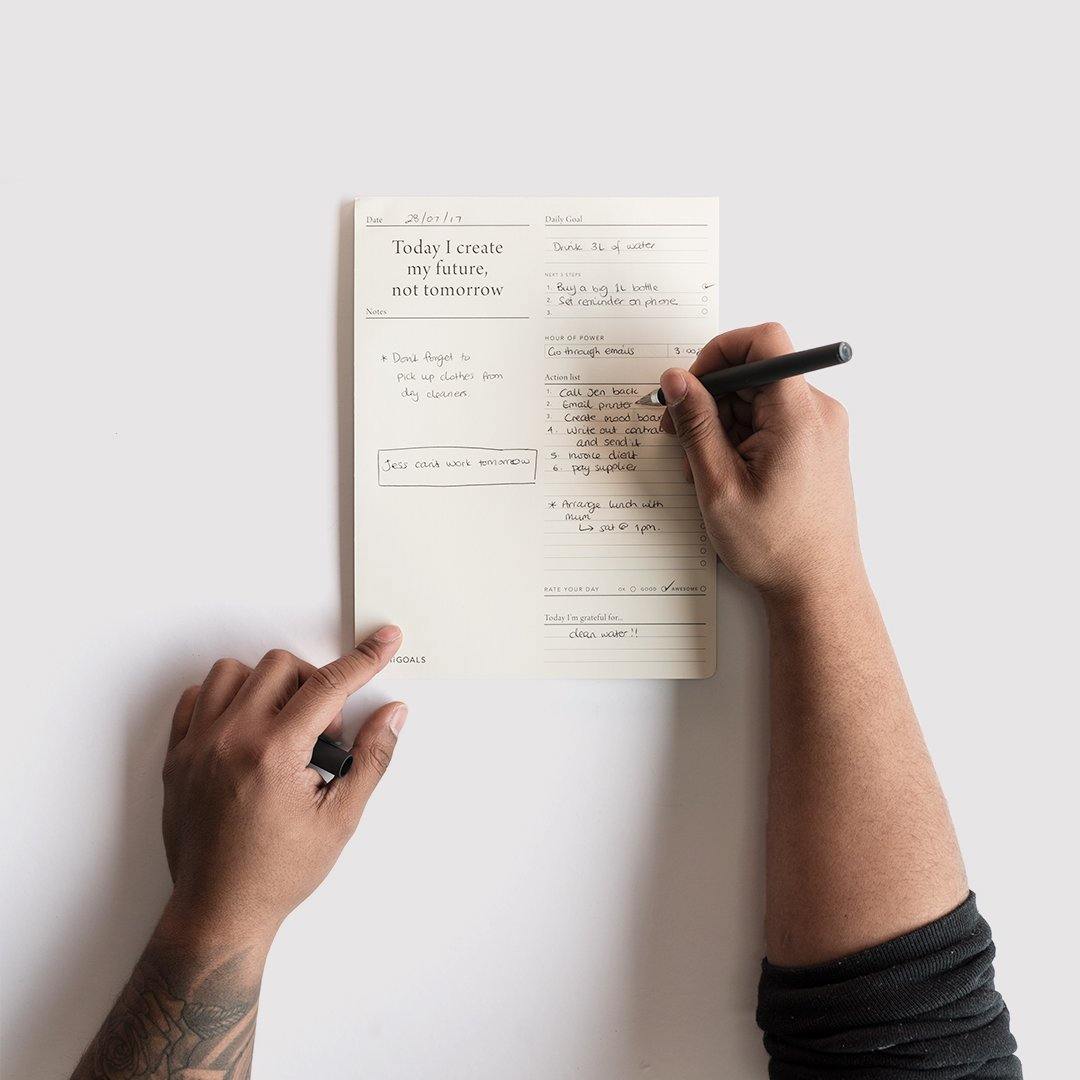 Date 28/07/17
Today I create
my future,
not tomorrow
Notes
* Don't forget to
pick up clothes from
dry cleaners.
Jess can't work tomorrow
iGOALS
Daily Goal
Drink 3L of water
NEXT 3 STEPS
1. Buy a big 1L bottle
2. Set reminder on phone
3.
HOUR OF POWER
Go through emails 3:00
Action list
1. Call Jen back
2. Email printer
3. Create mood
4. Write out
and send it
5. invoice client
6. pay supplier
* Arrange lunch with
mum
↳ sat @ 1pm.
RATE YOUR DAY OK GOOD AWESOME
Today I'm grateful for...
clean water!!